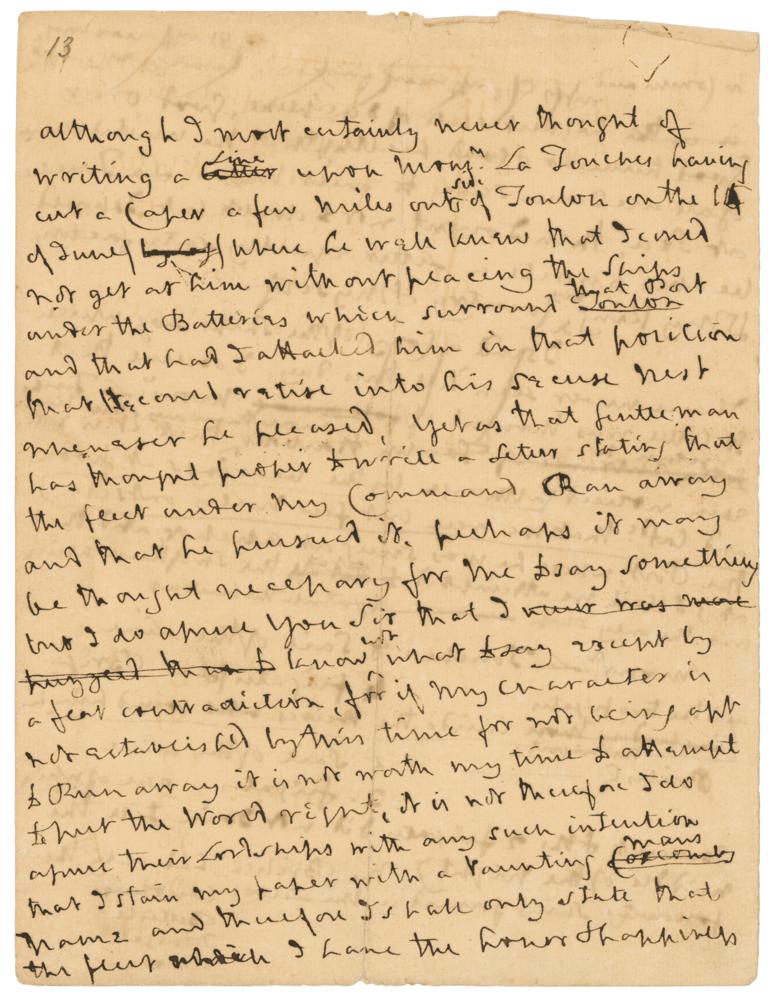 13
although I most certainly never thought of
writing a Line letter upon Monsr La Touches having
cut a Caper a few Miles outside of Toulon on the 14
of June where he well knew that I could
not get at him without placing the Ships
under the Batteries which surround that Port Toulon
and that had I attacked him in that position
that he could retire into his secure Nest
whenever he pleased, yet as that Gentleman
has thought proper to write a letter stating that
the fleet under my Command Ran away
and that he pursued it, perhaps it may
be thought necessary for me to say something
but I do assure You Sir that I never was more
puzzed than I know not what to say except by
a flat contradiction, for if my Character is
not established by this time for not being apt
to Run away it is not worth my time to attempt
to put the World right, it is not therefore I do
assure their Lordships with any such intention
that I stain my paper with a vaunting mans Coxcombs
Name and therefore I shall only state that
the fleet which I have the honor & happiness